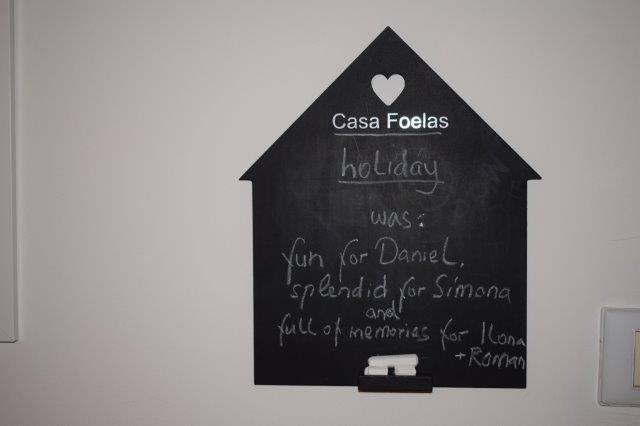 Casa Foelas
holiday
was:
fun for Daniel,
splendid for Simona
and
full of memories for Ilona
+ Roman